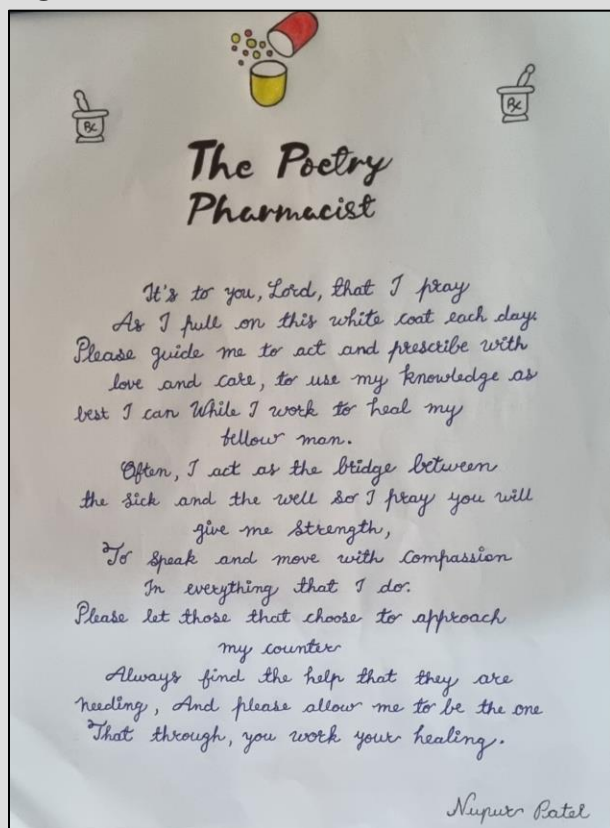 Rx
Rx
The Poetry
Pharmacist
It's to you, Lord, that I pray
As I pull on this white coat each day.
Please guide me to act and prescribe with
love and care, to use my knowledge as
best I can While I work to heal my
fellow man.
Often, I act as the bridge between
the sick and the well So I pray you will
give me strength,
To speak and move with compassion
In everything that I do.
Please let those that choose to approach
my counter
Always find the help that they are
needing, And please allow me to be the one
That through, you work your healing.
Nupur Patel